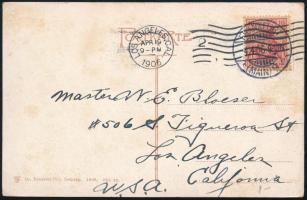 POSTKARTE
LOS ANGELES, CAL.
APR 19
9-PM
1906
2
Master W. E. Bloeser
#506 S. Figueroa St
Los Angeles
California
U.S.A.